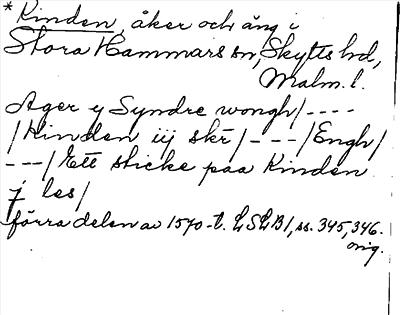 *Kinden, åker och äng i
Stora Hammars sn, Skytts hd,
Malm. l.
Ager y Syndre wongh/----
/Kinden iij skr̄/---/Engh/
---/Ett sticke paa Kinden
j les/
förra delen av 1570-t. LSLB1, ss. 345, 346.
orig.